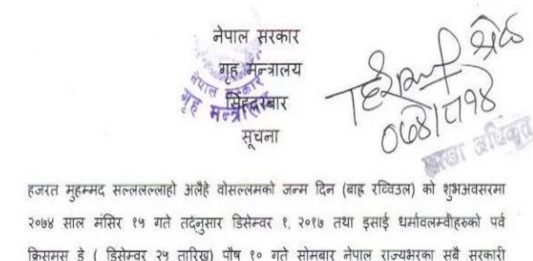 नेपाल सरकार
गृह मन्त्रालय
सिंहदरबार
सूचना
नेपाल सरकार
गृह मन्त्रालय
हजरत मुहम्मद सल्लल्लाहो अलैहे वोसल्लमको जन्म दिन (बाह्र रव्विउल) को शुभअवसरमा
२०७४ साल मंसिर १५ गते तद्‌नुसार डिसेम्वर १, २०१७ तथा इसाई धर्मावलम्वीहरुको पर्व
क्रिसमस डे ( डिसेम्वर २५ तारिख) पौष १० गते सोमबार नेपाल राज्यभरका सबै सरकारी